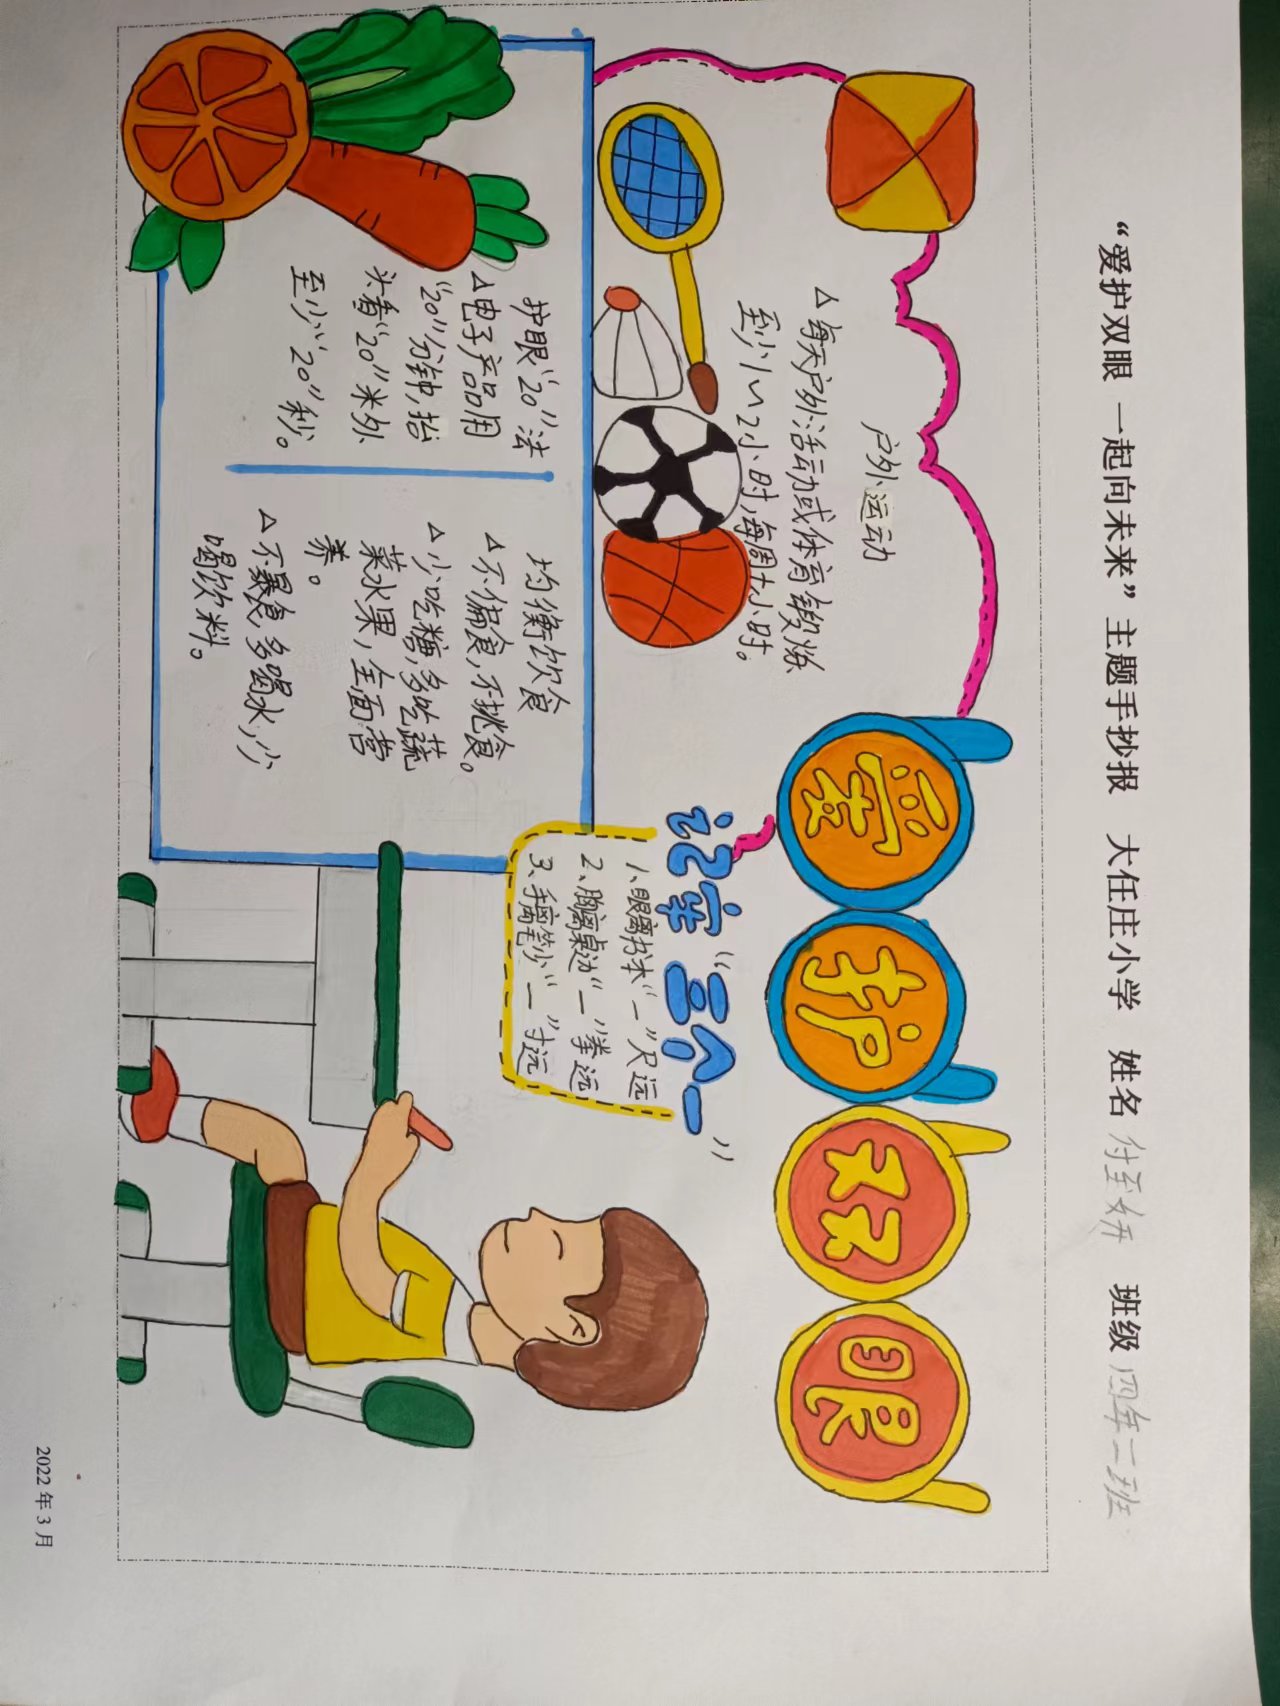 “爱护双眼 一起向未来”主题手抄报 大任庄小学 姓名 付至妍 班级 四年二班
爱护双眼
户外运动
△每天户外活动或体育锻炼
至少1~2小时,每周十小时。
记牢“三个一”
1、眼离书本“一”尺远
2、胸离桌边“一”拳远
3、手离笔尖“一”寸远
护眼“20”法
△电子产品用
“20”分钟,抬
头看“20”米外
至少“20”秒。
均衡饮食
△不偏食,不挑食。
△少吃糖,多吃蔬
菜水果,全面营
养。
△不暴食,多喝水,少
喝饮料。
2022年3月